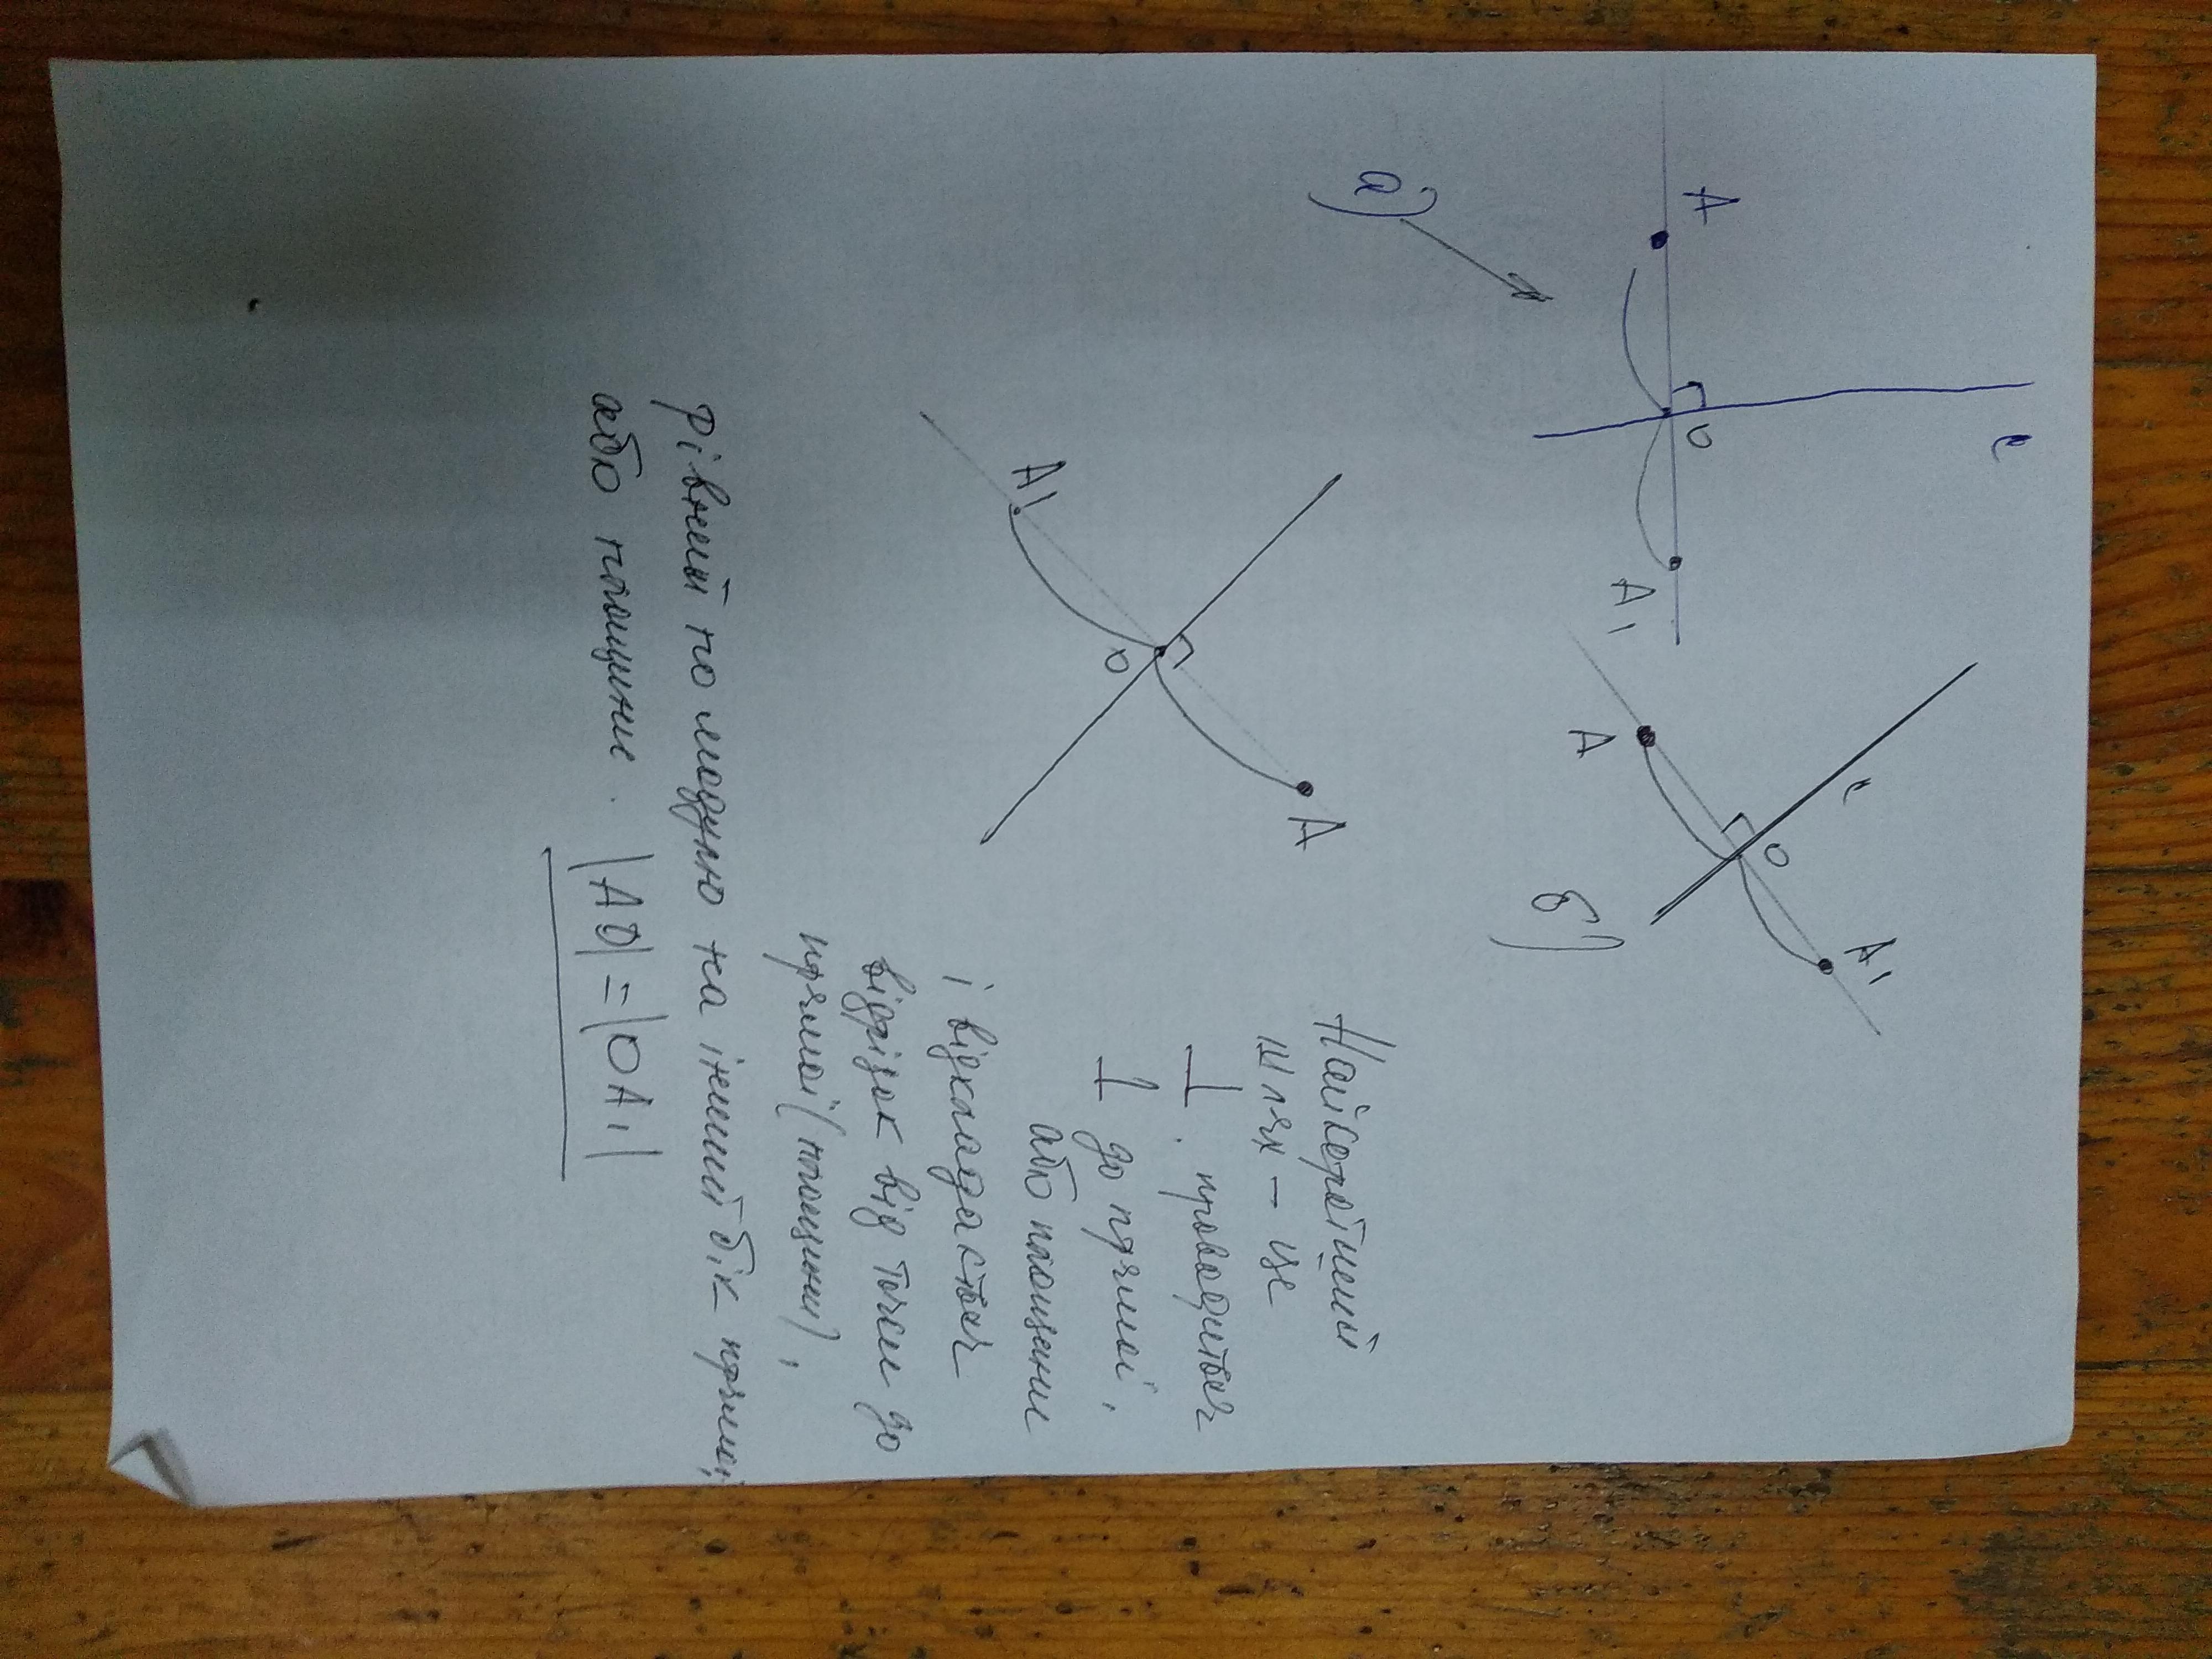 A
O
A₁
с
а)
с
A
O
A₁
б)
A
O
A₁
Найкоротший
шлях – це
⊥. проводиться
⊥ до прямої,
або площини
і відкладається
відрізок від точки до
прямої (площини),
Рівний по модулю на інший бік прямої
або площини. |AO| = |OA₁|